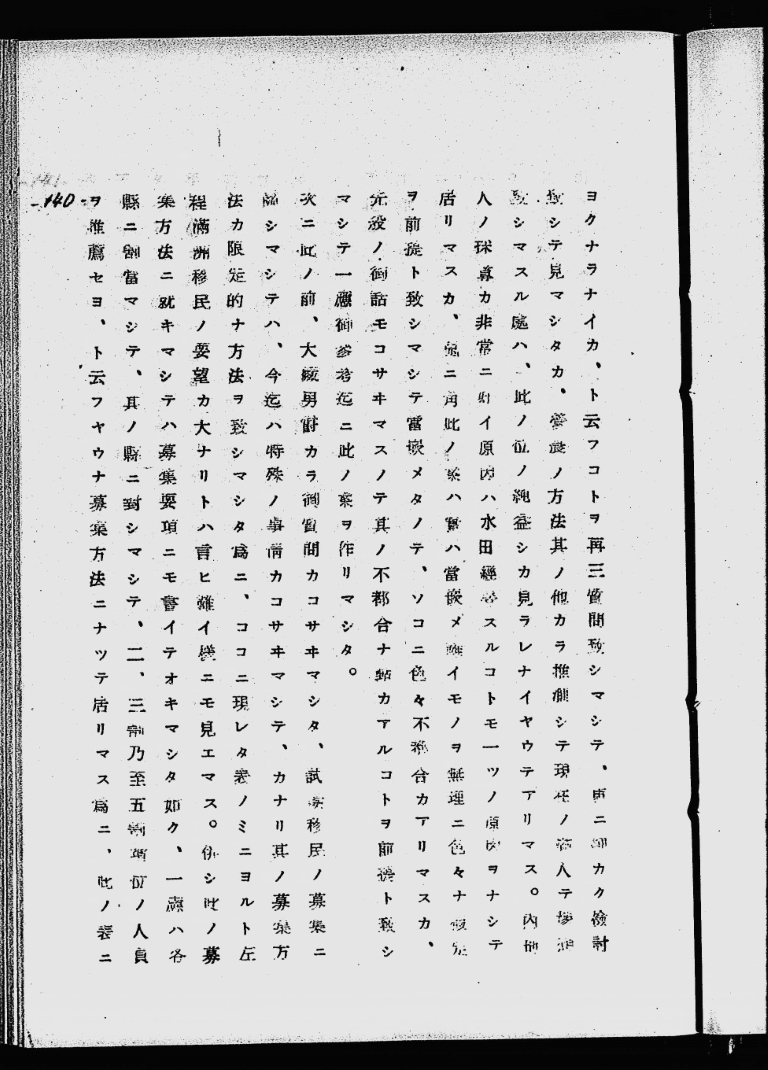 ヨクナラナイカ、ト云フコトヲ再三質問致シマシテ、更ニ細カク檢討
致シテ見マシタカ、營農ノ方法其ノ他カラ推測シテ現在ノ
致シマスル處ハ、此ノ位ノ純益シカ見ラレナイヤウテアリマス。內地
人ノ採算カ非常ニ 原因ハ水田經營スルコトモ一ツノ原因ヲナシテ
居リマスカ、兎ニ角此ノ案ハ實ハ當嵌メ難イモノヲ無理ニ色々ナ假定
ヲ前提ト致シマシテ當嵌メタノテ、ソコニ色々不都合カアリマスカ、
先般ノ御話モコサヰマスノテ其ノ不都合ナ點カアルコトヲ前提ト致シ
マシテ一應御參考迄ニ此ノ案ヲ作リマシタ。
次ニ此ノ前、大藏男爵カラ御質問カコサヰマシタ、試驗移民ノ募集ニ
關シマシテハ、今迄ハ特殊ノ事情カコサヰマシテ、カナリ其ノ募集方
法カ限定的ナ方法ヲ致シマシタ爲ニ、ココニ現レタ表ノミニヨルト左
程滿洲移民ノ要望カ大ナリトハ言ヒ難イ樣ニモ見エマス。併シ此ノ募
集方法ニ就キマシテハ募集要項ニモ書イテオキマシタ如ク、一應ハ各
縣ニ割當マシテ、其ノ縣ニ對シマシテ、二、三割乃至五割增位ノ人員
ヲ推薦セヨ、ト云フヤウナ募集方法ニナツテ居リマス爲ニ、此ノ表ニ
-140-